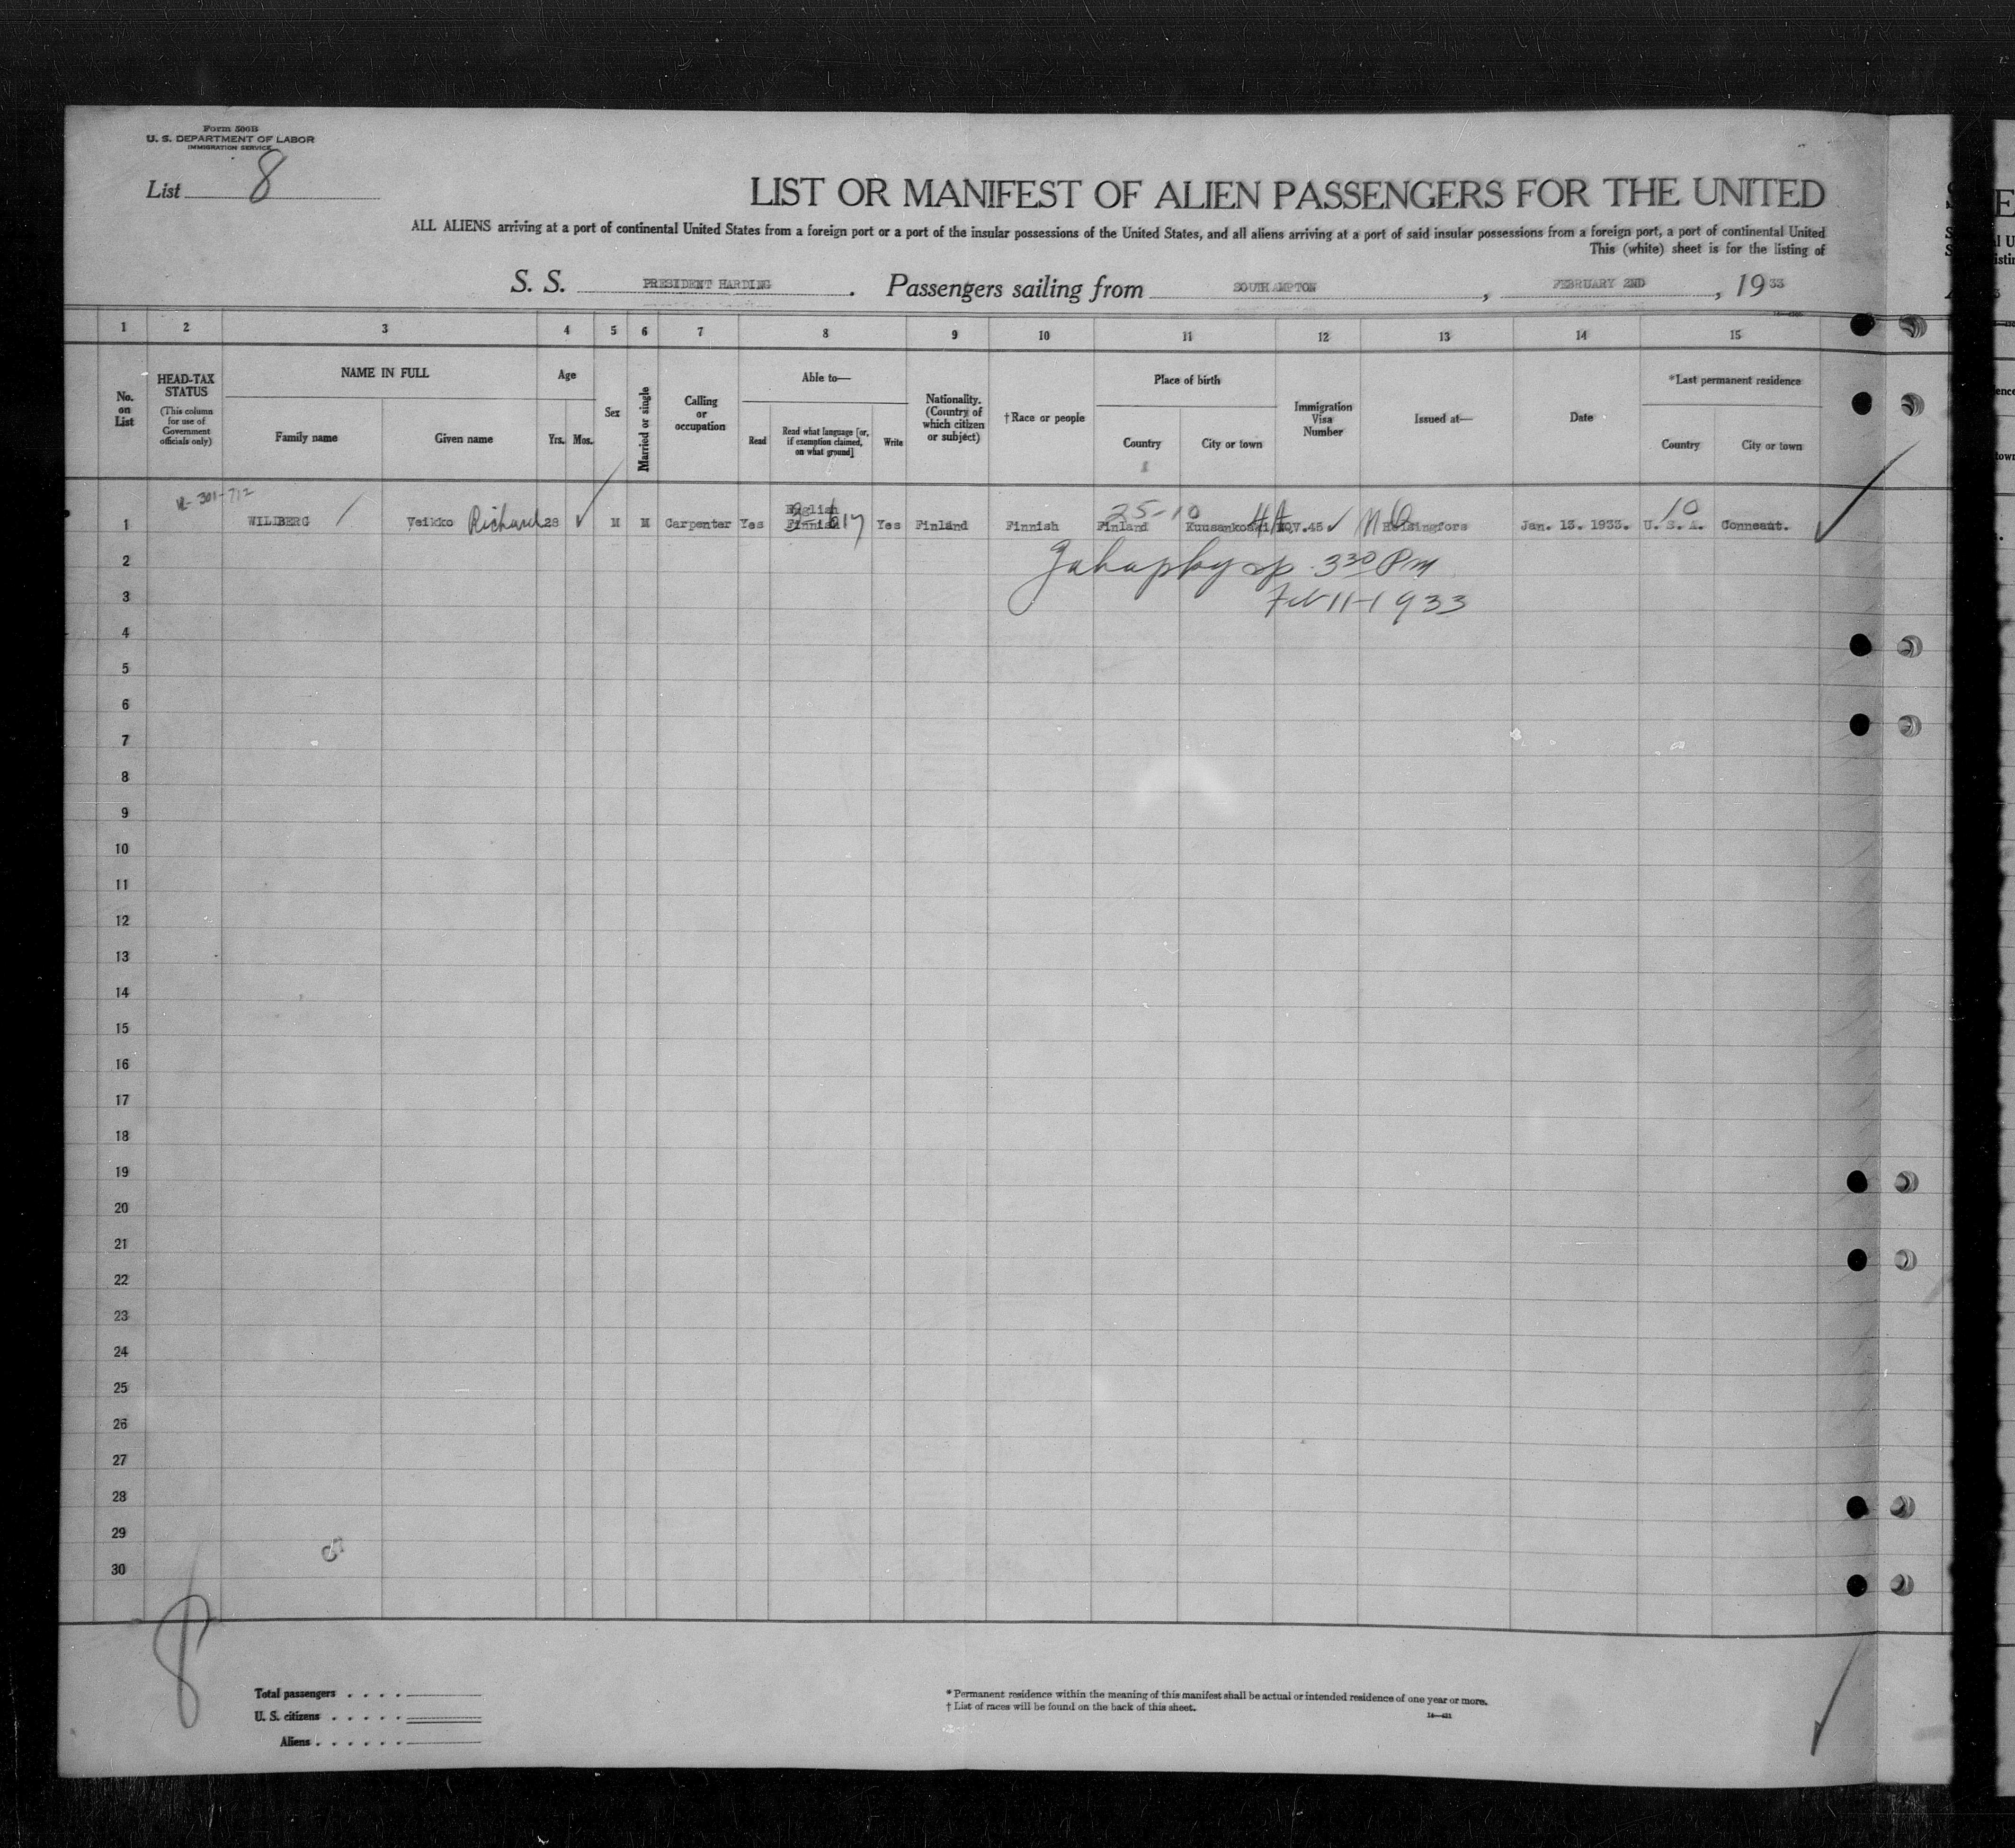 Form 500B
U. S. DEPARTMENT OF LABOR
IMMIGRATION SERVICE
List 8
LIST OR MANIFEST OF ALIEN PASSENGERS FOR THE UNITED
ALL ALIENS arriving at a port of continental United States from a foreign port or a port of the insular possessions of the United States, and all aliens arriving at a port of said insular possessions from a foreign port, a port of continental United
This (white) sheet is for the listing of
S. S. PRESIDENT HARDING. Passengers sailing from SOUTHAMPTON, FEBRUARY 2ND, 1933
1 2 3 4 5 6 7 8 9 10 11 12 13 14 15
No. on List
HEAD-TAX STATUS
(This column for use of Government officials only)
NAME IN FULL
Family name
Given name
Age
Yrs. Mos.
Sex
Married or single
Calling or occupation
Able to—
Read
Read what language [or, if exemption claimed, on what ground]
Write
Nationality. (Country of which citizen or subject)
†Race or people
Place of birth
Country
City or town
Immigration Visa Number
Issued at—
Date
*Last permanent residence
Country
City or town
25-10
10
1 WILDBERG Veikko Richard 28 M M Carpenter Yes English Finnish Yes Finland Finnish Finland Kuusankoski NQV.45 Helsingfors Jan. 13. 1933. U. S. A. Conneaut.
2 330 Pm
3 Feb 11-1933
4
5
6
7
8
9
10
11
12
13
14
15
16
17
18
19
20
21
22
23
24
25
26
27
28
29
30
8
Total passengers
U. S. citizens
Aliens
* Permanent residence within the meaning of this manifest shall be actual or intended residence of one year or more.
† List of races will be found on the back of this sheet.